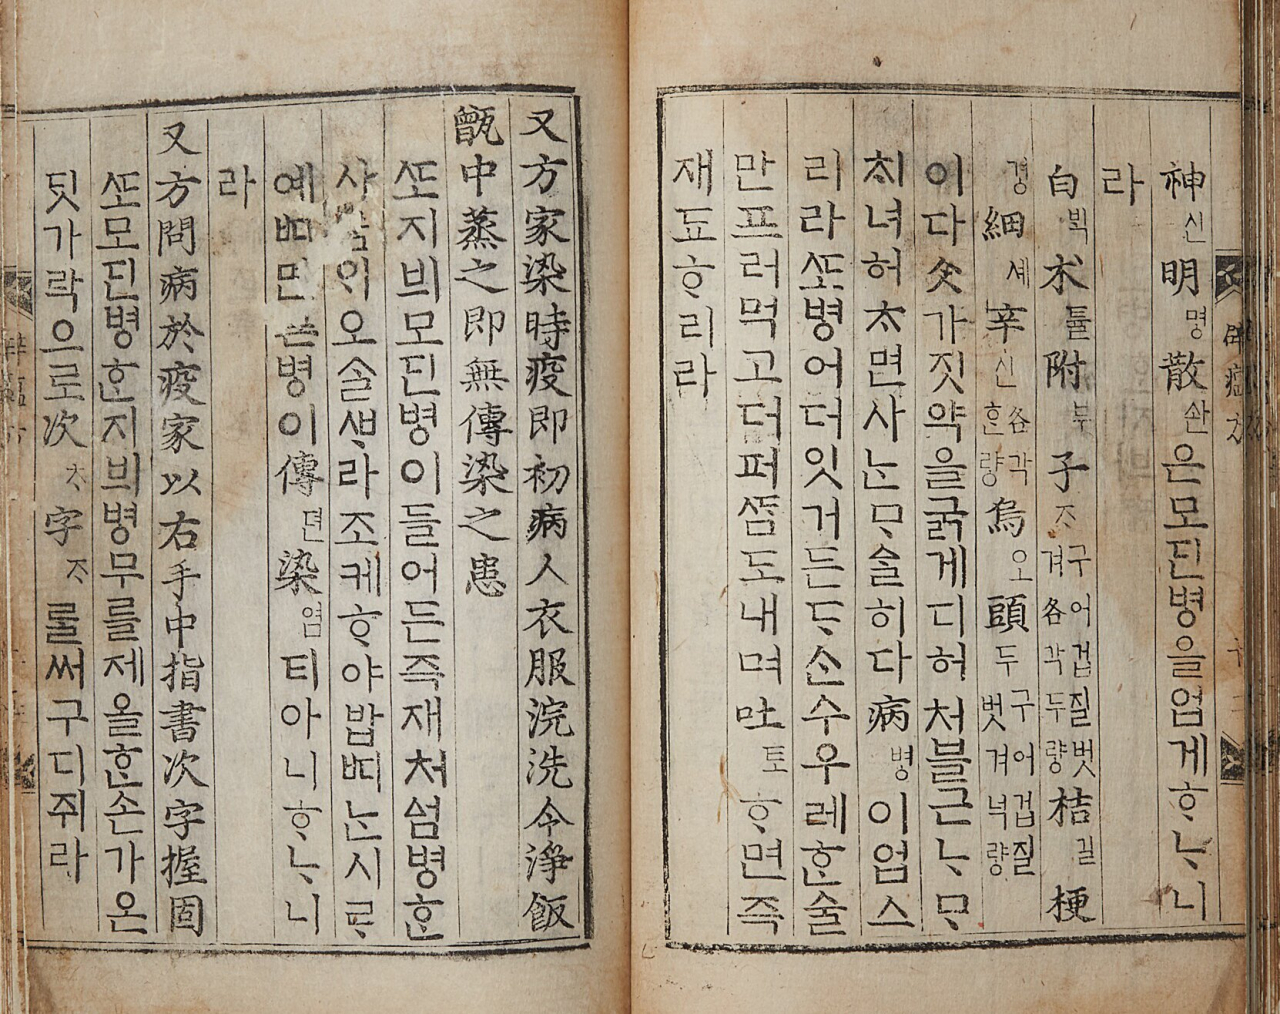 神신明명散산은모딘병을업게ᄒᆞᄂᆞ니
라
白ᄇᆡᆨ朮튤附부子ᄌᆞ구어겁질벗겨各각두량桔길梗
경細셰辛신各각ᄒᆞᆫ량烏오頭두구어겁질벗겨넉량
이다ᄉᆞᆺ가짓약을굵게디허처블근ᄂᆞᄆᆞ
ᄎᆡ녀허ᄎᆞ면사ᄂᆞᆫᄆᆞᄉᆞᆯ히다病병이업스
리라ᄯᅩ병어더잇거든ᄃᆞᄉᆞᆫ수우레ᄒᆞᆫ술
만프러먹고더퍼ᄯᆞᆷ도내며吐토ᄒᆞ면즉
재됴ᄒᆞ리라
又方家染時疫即初病人衣服浣洗令淨飯
甑中蒸之即無傳染之患
ᄯᅩ지븨모딘병이들어든즉재처섬병ᄒᆞᆫ
사ᄅᆞᆷ의오ᄉᆞᆯᄲᆞ라조케ᄒᆞ야밥ᄠᅵᄂᆞᆫ시ᄅᆞ
예ᄠᅵ면병이傳뎐染염티아니ᄒᆞᄂᆞ니
라
又方問病於疫家以右手中指書次字握固
ᄯᅩ모딘병ᄒᆞᆫ지븨병무를제올ᄒᆞᆫ손가온
딧가락으로次ᄎᆞ字ᄌᆞ를써구디쥐라